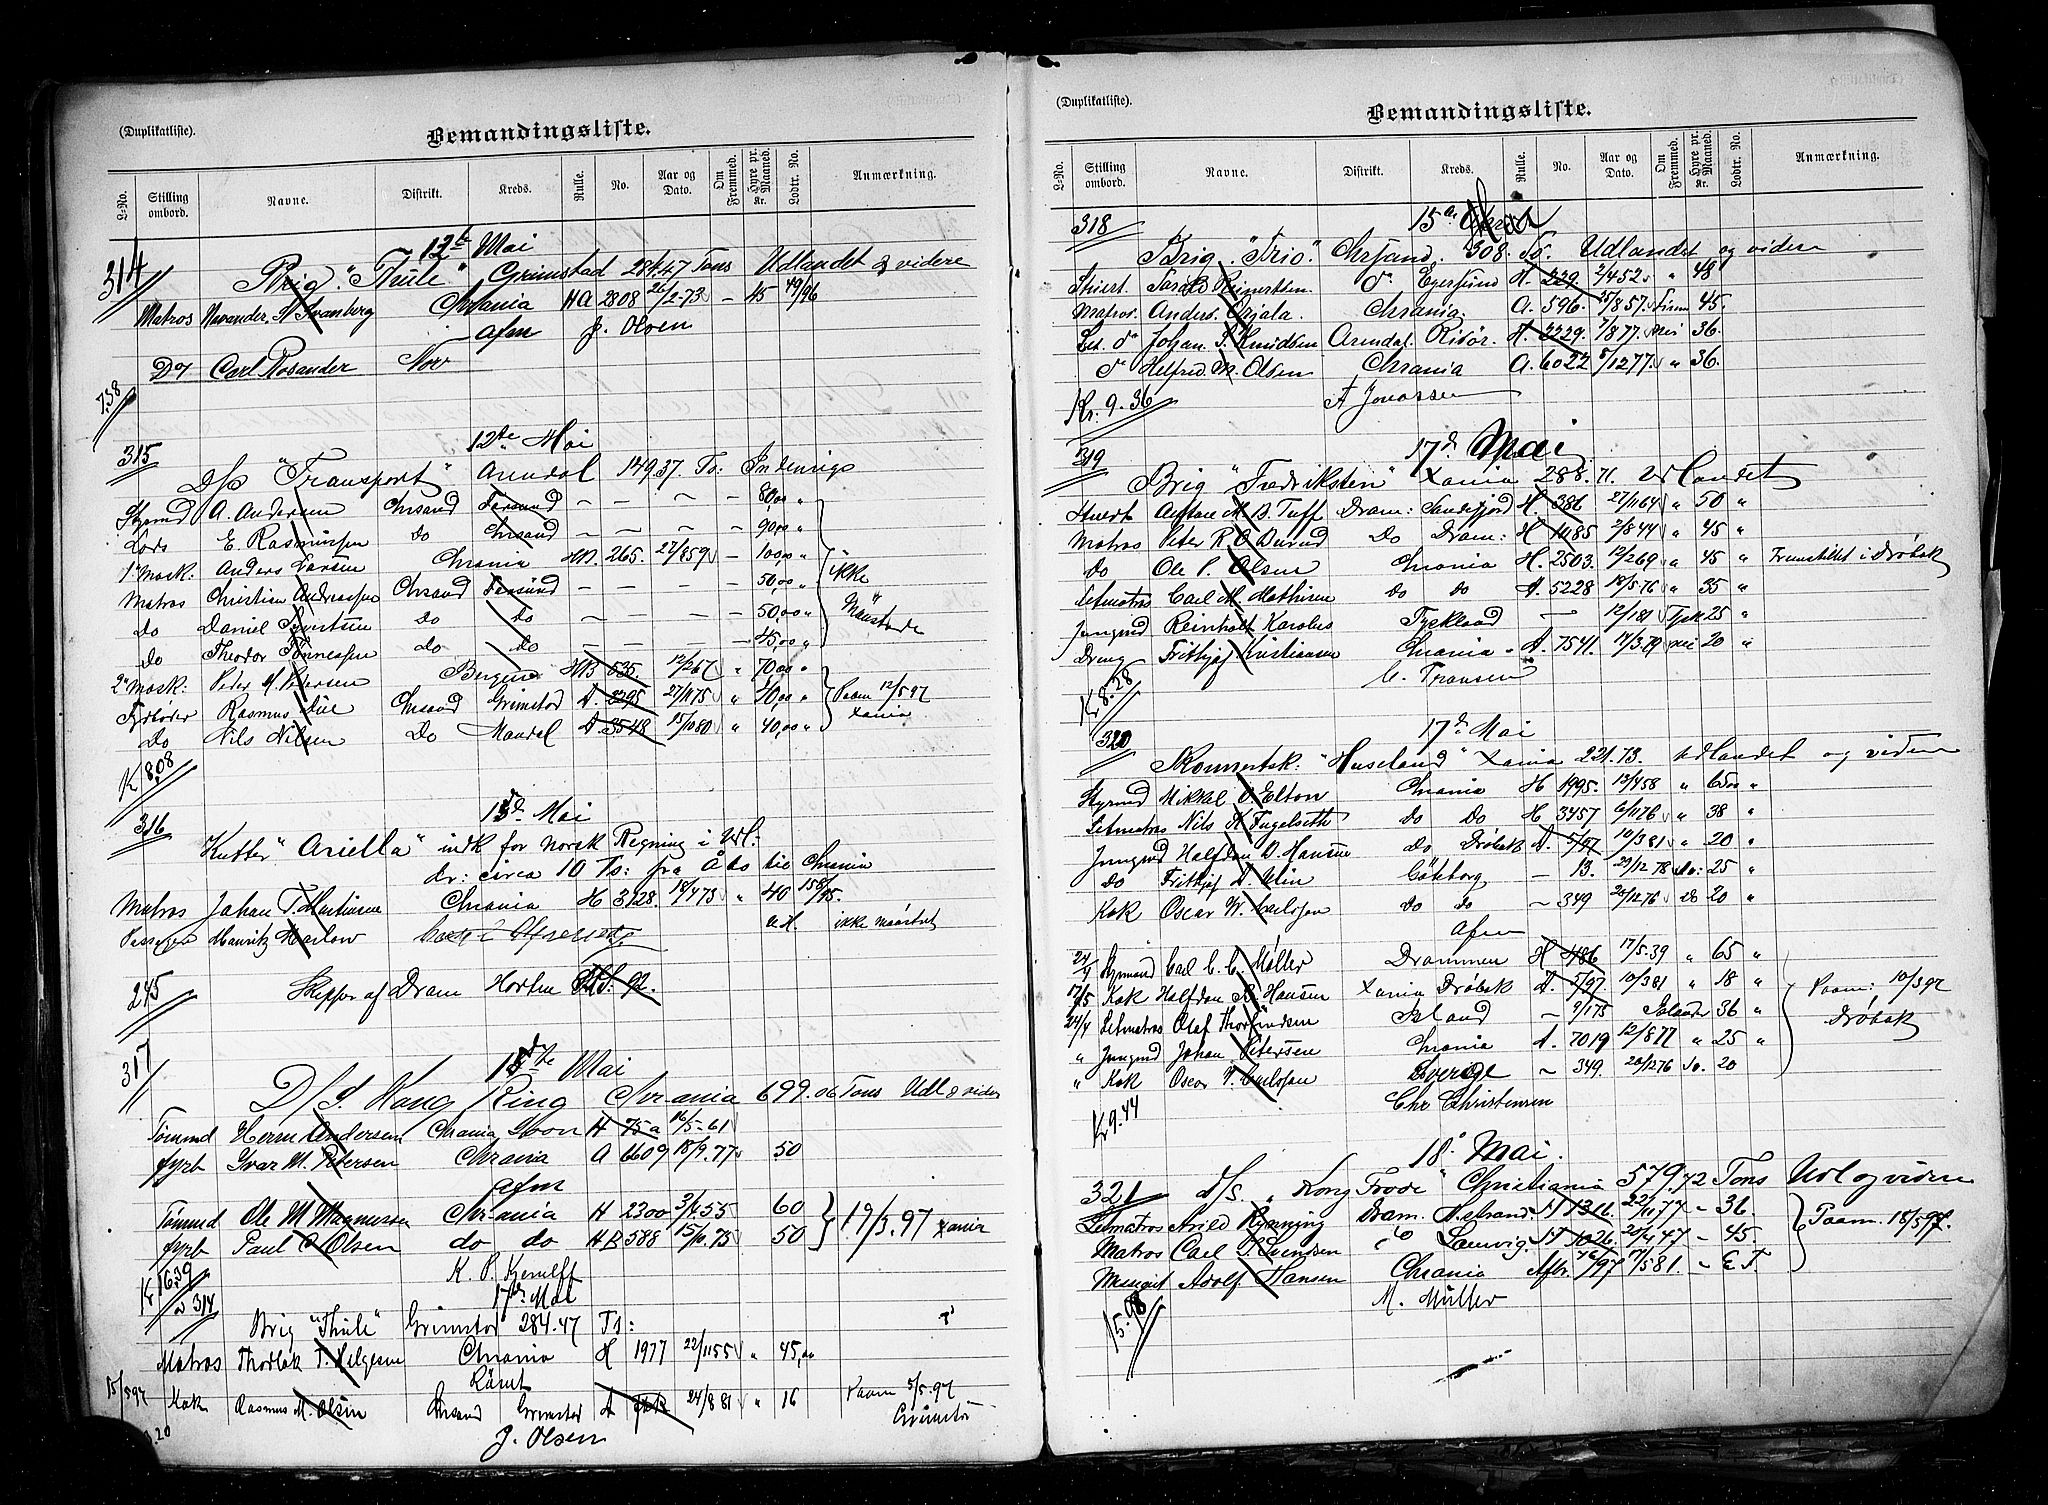 (Duplikatliste).
Bemandingsliste.
L-No. Stilling ombord. Navne. Distrikt. Kreds. Rulle. No. Aar og Dato. Om Fremmed. Hyre pr. Maaned. Kr. Lodtr. No. Anmærkning.
314 12te Mai
Brig "Thule" Grimstad 284.47 Tons Udlandet & videre
Matros Svanberg Chrania HA 2808 26/2.73 - 45 49/96
Afm J. Olsen
Do Carl Rosander Nov
7.58
315 12te Mai
D/S "Transport" Arendal 149.37. To: Indenrigs
Styrmd A. Andersen Chrsand Farsund - - - - 80,00 "
Lods E. Rasmussen Do Chrsand - - - - 90,00 "
1ste Mask. Anders Larsen Chrania HD. 265. 27/859 - 100,00 " ikke
Matros Christian Andreassen Chrsand Farsund - - 50,00 " Mønstrede
Do Daniel Syvertsen do Do - - 50,00 "
Do Theodor Tønnessen do do - - 45,00 "
2n Mask: Peder M. Petersen Bergen HB 535. 12/267 " 70,00 "
Fyrbøder Rasmus Due Chrsand Grimstad A. 2295 27/1175 " 40,00 " Paam 12/5 97
Xania
Do Nils Nilsen Do Mandal A. 3548 15/1080 " 40,00 "
K 8,08
316 13de Mai
Kutter "Ariella" indk for norsk Regning i Udl:
dr: circa 10 Ts: fra Åbo til Chrania
Matros Johan T. Martinsen Chrania H 3128. 18/473 " 40 158/95.
Passager Mauritz Marlow ikke mønstret
245 Skipper af Dram Horten 92.
317 18de Mai
D/S. Kong Ring Chrania 699.06 Tons Udl & videre
Tømmd Herm Andersen Chrania Moss H 75a 16/5-61
fyrb Ivar M. Petersen Chrania A 6609 18/9.77 50
afm
Tømmd Ole M Magnussen Chrania H 2300 3/4.55 60
fyrb Paul C Olsen do do HB 588 15/10.73 50 19/5.97 Xania
K. P. Kjerulff
Kr 16.39
17de Mai
ad 314
Brig "Thule" Grimstad 284.47 Ts:
Matros Thorlak T. Helgesen Chrania H 1977 22/1155 " 45,00
Rømt
15/597 Kok Rasmus M. Olsen Chrsand Grimstad A 24/881 " 16 Paam 5/5.97
Grimstad
J. Olsen
(Duplikatliste).
Bemandingsliste.
L-No. Stilling ombord. Navne. Distrikt. Kreds. Rulle. No. Aar og Dato. Om Fremmed. Hyre pr. Maaned. Kr. Lodtr. No. Anmærkning.
318 15de
Brig. "Trio." Chrsand. 308. To. Udlandet og videre
Stuert. Reinertsen do Egersund H. 229. 2/452. " 48
Matros. Anders. Orjala. Chrania. A. 596. 25/857. Finn 45.
Let. do Johan. S. Knudsen Arendal Risør. H. 2229. 7/877. nei 36.
do Helfred. M. Olsen Chrania A. 6022 5/1277. " 36.
Kr. 9.36 A Jonassen
319 17de Mai
Brig "Fredriksten" Xania 288.71. Udlandet
Stuert M. B. Tuff Dram: Sandefjord H. 386 27/1164 " 50 "
Matros Peter R. O. Durud Do Dram: H 1085 2/844 " 45 "
Do Ole P. Olsen Chrania H. 2503. 12/269 " 45 " Fremstillet i Drøbak
Letmatros Carl M. Mathisen do do A. 5228 18/576 " 35 "
Jungmd Reinholt Karolus Tyskland - 12/181 Tysk 25 "
Dreng Frithjof Kristiansen Chrania A. 7541. 17/3.79 nei 20 "
Kr 8.28 C. Fransen
320 17de Mai
Skonnertsk. "Huseland" Xania 221.73. udlandet og videre
Styrmd Mikkal O. Elton Chrania H 1995. 12/458 " 65.00 "
Letmatros Nils A Fugelseth Do Do H 3457 6/1176 " 38 "
Jungmd Halfdan B. Hansen do Drøbak A. 5/97 10/381 " 20 "
Do Frithjof A. Göteborg - 13. 29/12 78 Sv: 25 "
Kok Oscar W. Carlssen do do - 349 20/1276 Do 20 "
Afm
24/4 Styrmand Carl C. C. Møller Drammen H 486 17/5.39 " 65 "
17/5 Kok Halfdan B. Hansen Xania Drøbak A. 5/97 10/381 " 18 " Paam: 10/3 97
24/4 Letmatros Olaf Thorfindsen Island - 9/175 Islander 36 " Drøbak
" Jungmd Johan Petersen Chrania A. 7019 12/877 " 25 "
" Kok Oscar V. Carlssen Sverige - 349. 20/1276 Sv. 20
Kr 9.44 Chr Christensen
18de Mai.
321 D/S. "Kong Frode" Christiania 579.72 Tons Udl og videre
Letmatros Arild Rynning Dram. 22/1177 - 36.
Matros Carl S. Svendsen do Laurvig. 1026. 20/447 - 45. Paam. 18/597.
Adolf Hansen Chrania Afbr. 76/97 17/581. - E T
M. Müller
15.98